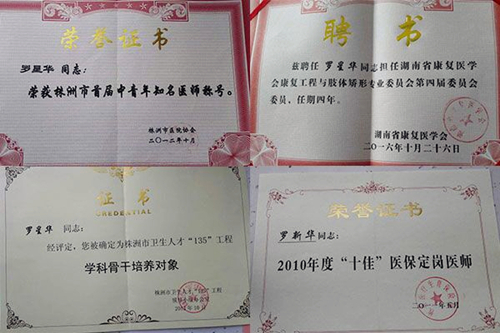 荣誉证书
罗星华 同志:
荣获株洲市首届中青年知名医师称号。
株洲市医院协会
二〇一二年十月
聘 书
兹聘任 罗星华 同志担任湖南省康复医学
会康复工程与肢体矫形专业委员会第四届委员会
委员、任期四年。
湖南省康复医学会
二〇一六年十月二十六日
证 书
CREDENTIAL
罗星华 同志:
经评定,您被确定为株洲市卫生人才“135”工程
学科骨干培养对象
株洲市卫生人才“135”工程
荣誉证书
罗新华 同志:
2010年度“十佳”医保定岗医师